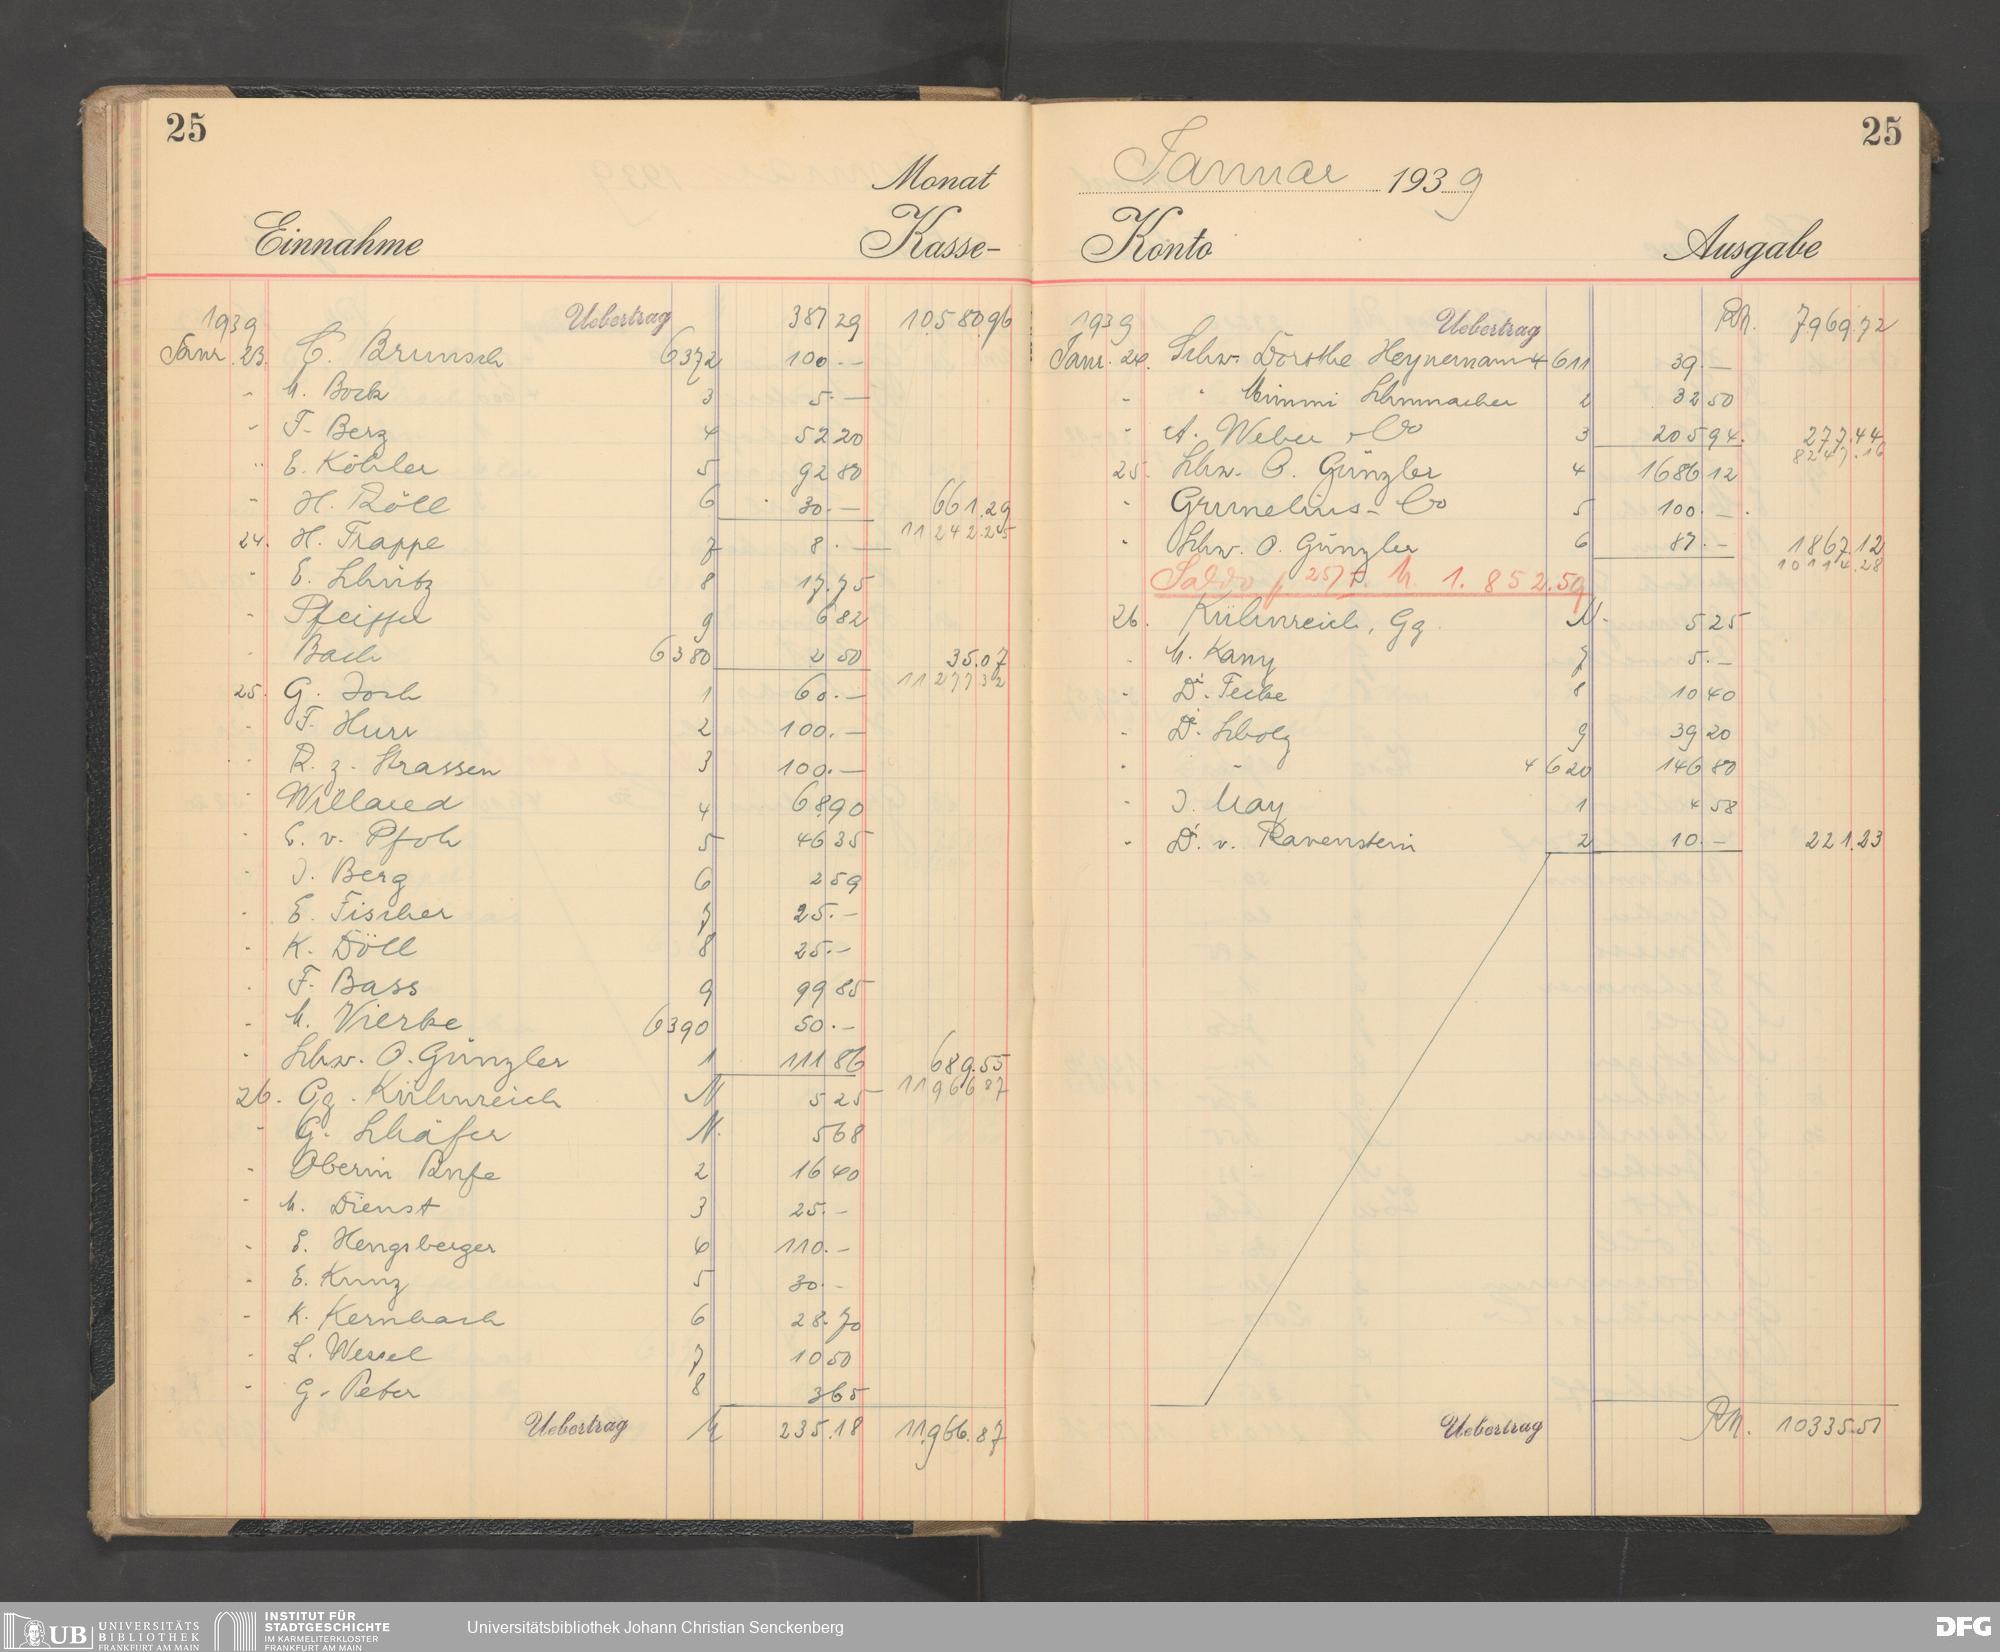 25
Monat
Einnahme Kasse-
1939 Uebertrag 387 29 10580.96
Janr. 23. C. Brunsch 6372 100.—
" M. Bock 3 5.—
" F. Berz 4 52 20
" E. Köhler 5 92 80
" H. Röll 6 30.— 661.29
11242.25
24. H. Trappe 7 8.—
" E. Schütz 8 17.75
" Pfeiffer 9 6 82
" Bach 6380 2 50 35.07
11277 32
25. G. Joch 1 60.—
" F. Hurr 2 100.—
" R. z. Strassen 3 100.—
" Willared 4 68.90
" E. v. Pfoh 5 46 35
" J. Berg 6 2 59
" E. Fischer 7 25.—
" K. Döll 8 25.—
" F. Bass 9 99 85
" M. Vierke 6390 50.—
" Schw. O. Günzler 1 111 86 689.55
11966 87
26. Gg. Kühnreich N 5 25
" G. Schäfer N. 5 68
" Oberin Rufe 2 16 40
" M. Dienst 3 25.—
" E. Hengsberger 4 110.—
" E. Kunz 5 30.—
" K. Kernbach 6 28.70
" L. Wessel 7 10 50
" G. Peter 8 3 65
Uebertrag M 235.18 11.966.87
25
Januar 1939
Konto Ausgabe
1939 Uebertrag RM. 7969.72
Janr. 24. Schw. Dorothe Heynemann 4611 39.—
" " Mimmi Schumacher 2 32 50
" A. Weber & Co 3 205 94. 277.44
8247.16
25. Schw. O. Günzler 4 1686 12
" Grunelius & Co 5 100.—
" Schw. O. Günzler 6 87.— 1867.12
10114.28
Saldo p. 25/I. M. 1.852.59
26. Kühnreich, Gg. N. 5 25
" M. Kany 7 5.—
" Dr. Fecke 8 10 40
" Dr. Scholz 9 39 20
" " 4620 146 80
" J. May 1 4 58
" Dr. v. Ravenstein 2 10.— 221.23
Uebertrag RM. 10335.51
UB UNIVERSITÄTS
BIBLIOTHEK
FRANKFURT AM MAIN
INSTITUT FÜR
STADTGESCHICHTE
IM KARMELITERKLOSTER
FRANKFURT AM MAIN
Universitätsbibliothek Johann Christian Senckenberg
DFG